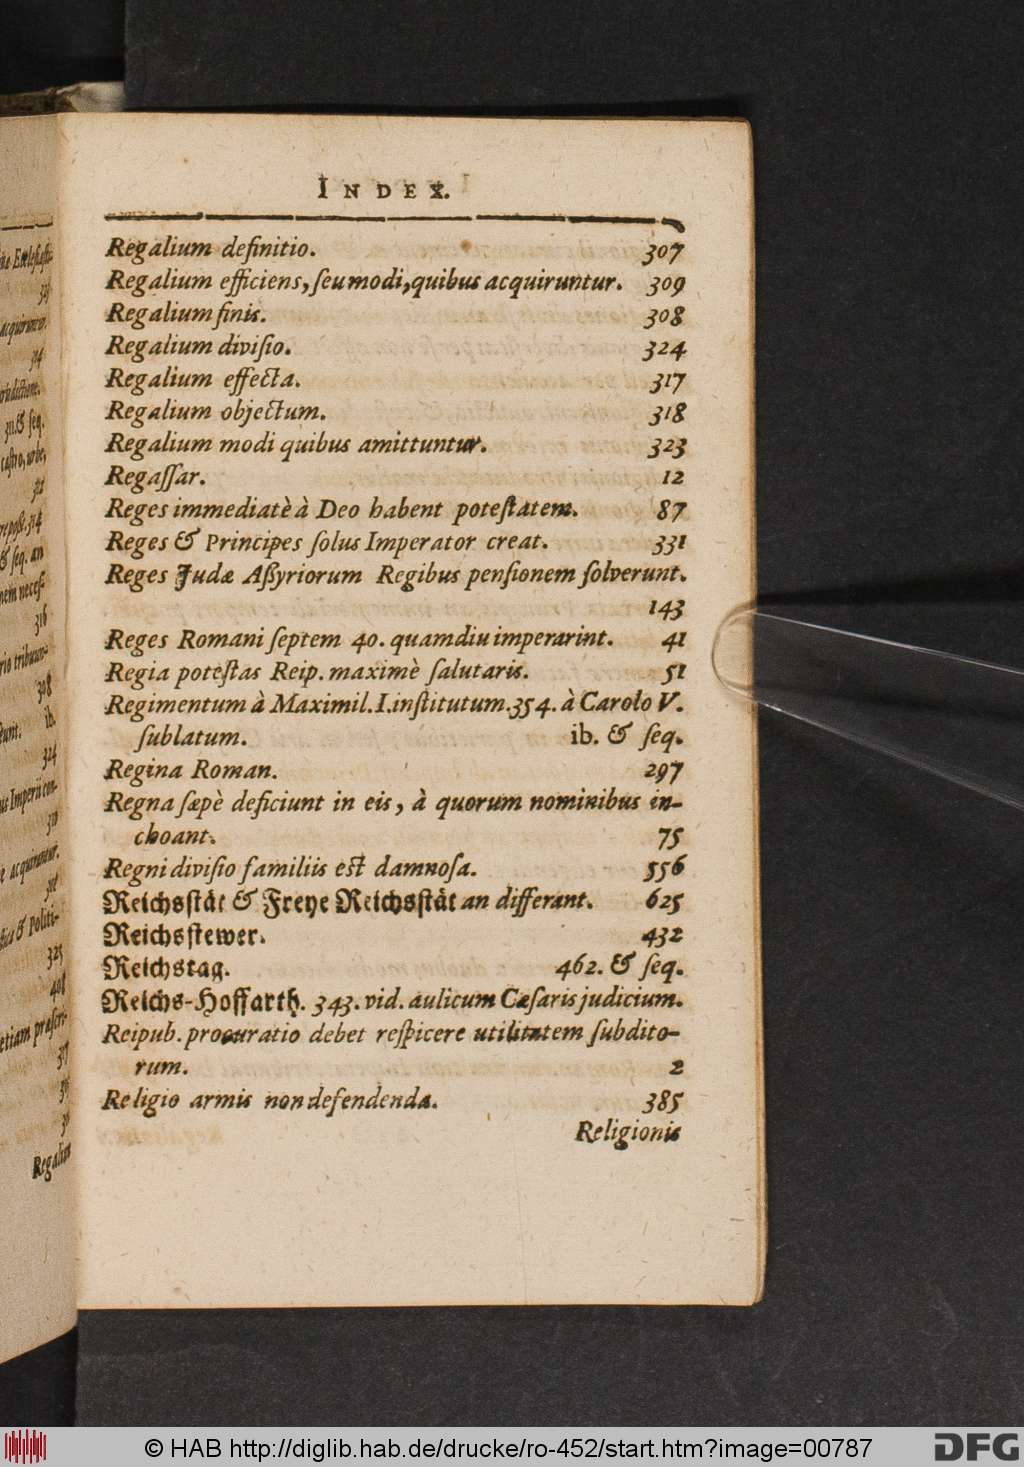 INDEX.
Regalium definitio. 307
Regalium efficiens, ſeu modi, quibus acquiruntur. 309
Regalium finis. 308
Regalium diviſio. 324
Regalium effecta. 317
Regalium objectum. 318
Regalium modi quibus amittuntur. 323
Regaſſar. 12
Reges immediatè à Deo habent poteſtatem. 87
Reges & Principes ſolus Imperator creat. 331
Reges Judæ Aßyriorum Regibus penſionem ſolverunt.
143
Reges Romani ſeptem 40. quamdiu imperarint. 41
Regia poteſtas Reip. maximè ſalutaris. 51
Regimentum à Maximil. I. inſtitutum. 354. à Carolo V.
ſublatum. ib. & ſeq.
Regina Roman. 297
Regna ſæpè deficiunt in eis, à quorum nominibus in-
choant. 75
Regni diviſio familiis eſt damnoſa. 556
Reichsſtät & Freye Reichsſtät an differant. 625
Reichsſtewer. 432
Reichstag. 462. & ſeq.
Reichs-Hoffarth. 343. vid. aulicum Cæſaris judicium.
Reipub. procuratio debet reſpicere utilitatem ſubdito-
rum. 2
Religio armis non defendenda. 385
Religionis
Eccleſiaſti-
acquiruntur.
314
311. & ſeq.
caſtro, urbe,
& ſeq. an
316
308
ib.
324
us Imperii con-
310
e acquirantur.
& Politi-
325
408
etiam præſcri-
317
Regalium
© HAB http://diglib.hab.de/drucke/ro-452/start.htm?image=00787
DFG